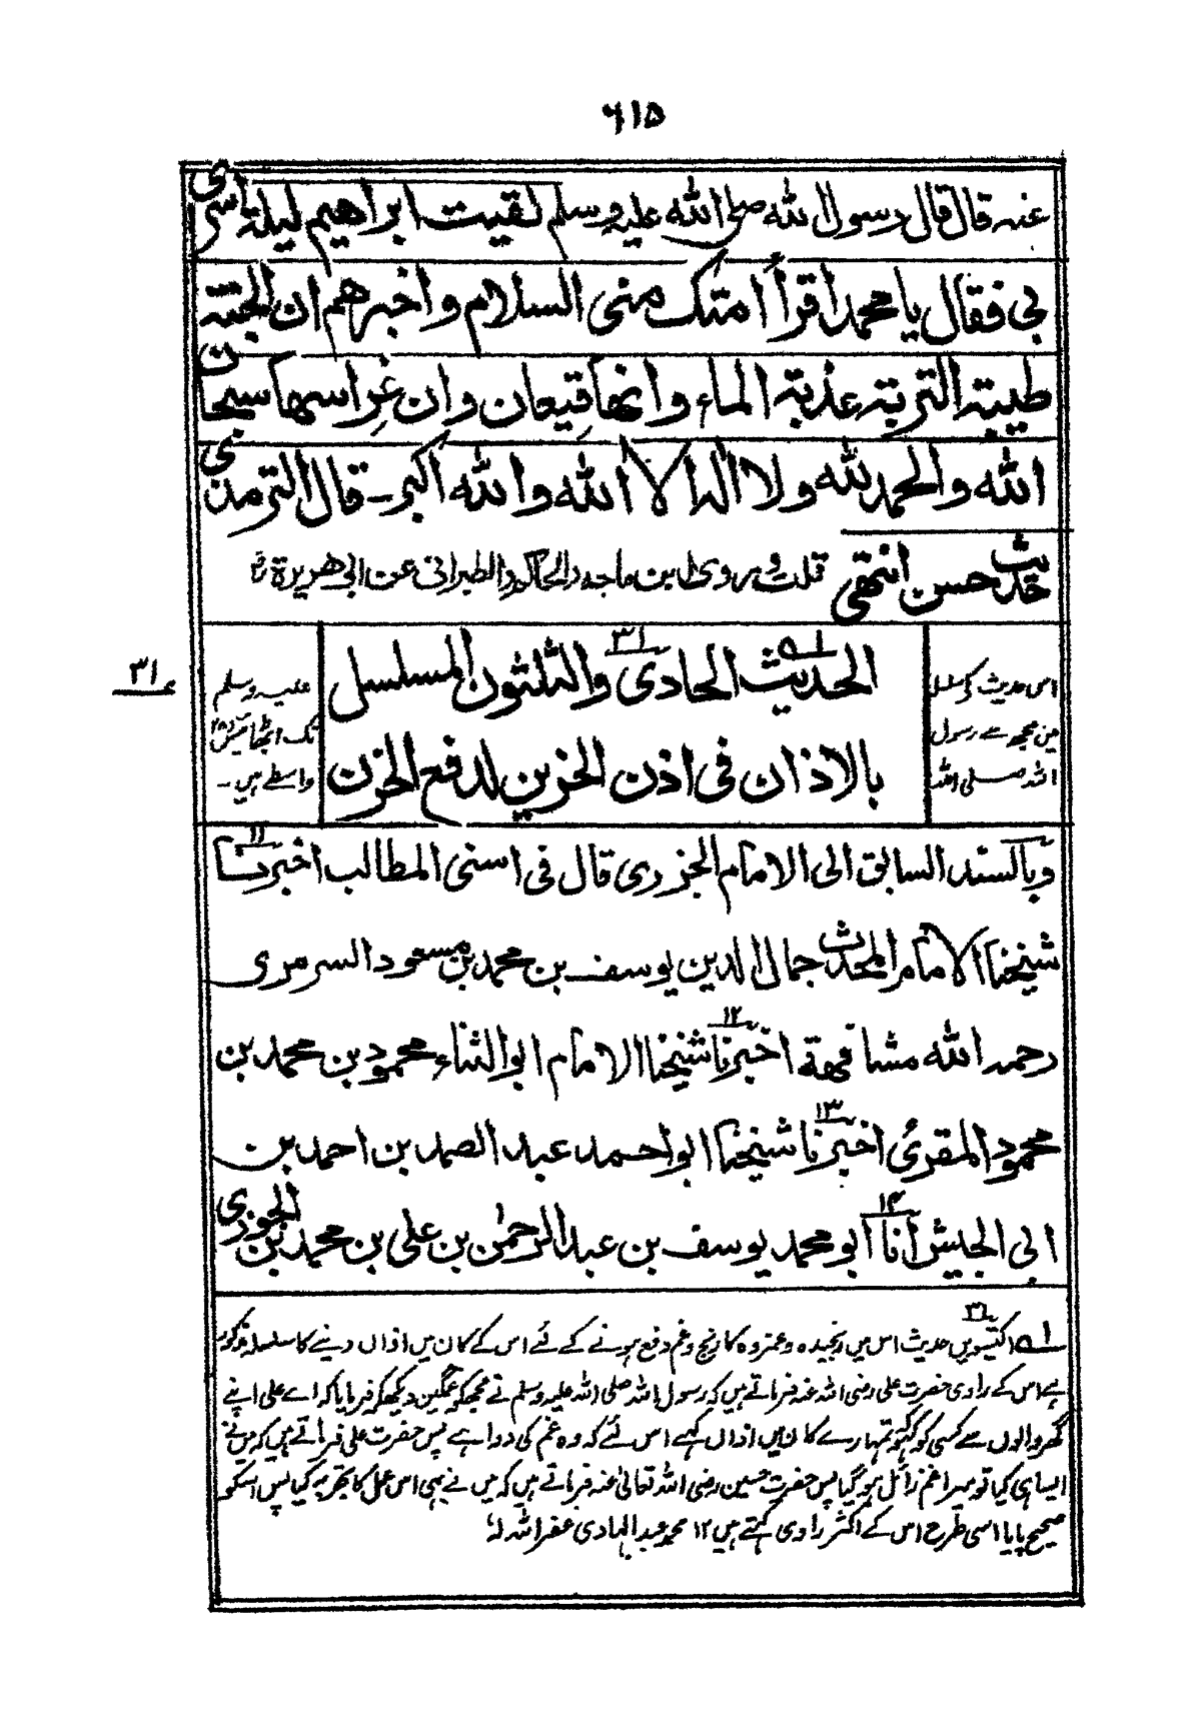 ۶۱۵
عنہ قال قال رسول اللہ صلی اللہ علیہ وسلم لقیت ابراھیم لیلۃ اسری
بی فقال یا محمد اقرأ امتک منی السلام واخبرھم ان الجنۃ
طیبۃ التربۃ عذبۃ الماء وانھا قیعان وان غراسھا سبحان
اللہ والحمد للہ ولا الہ الا اللہ واللہ اکبر۔ قال الترمذی
حدیث حسن انتھی قلت وروی ابن ماجہ والحاکم والطبرانی عن ابی ھریرۃ رض
الحدیث الحادی والثلثون المسلسل
بالاذان فی اذن الحزین لدفع الحزن
۳۱
اس حدیث کے مسلسل
میں مجھ سے رسول
اللہ صلی اللہ
علیہ وسلم
تک اٹھائیس ۲۸
واسطے ہیں۔
۳۱
وبالسند السابق الی الامام الجزری قال فی اسنی المطالب اخبرنا ۱۱
شیخنا الامام المحدث جمال الدین یوسف بن محمد بن مسعود السرمری
رحمہ اللہ مشافھۃ اخبرنا ۱۲ شیخنا الامام ابو الثناء محمود بن محمد بن
محمود المقرئ اخبرنا ۱۳ شیخنا ابو احمد عبد الصمد بن احمد بن
ابی الجیش أنا ۱۴ ابو محمد یوسف بن عبد الرحمٰن بن علی بن محمد بن الجوزی
۱؎ اکتیسویں ۳۱ حدیث اس میں رنجیدہ وغمزدہ کا رنج وغم دفع ہونے کے لئے اس کے کان میں اذاں دینے کا سلسلہ مذکور
ہے اس کے راوی حضرت علی رضی اللہ عنہ فرماتے ہیں کہ رسول اللہ صلی اللہ علیہ وسلم نے مجھکو غمگین دیکھکر فرمایا کہ اے علی اپنے
گھر والوں سے کسی کو کہو تمہارے کان میں اذاں کہے اس لئے کہ وہ غم کی دوا ہے پس حضرت علی فرماتے ہیں کہ میں نے
ایسا ہی کیا تو میرا غم زائل ہو گیا پس حضرت حسین رضی اللہ تعالیٰ عنہ فرماتے ہیں کہ میں نے بھی اس عمل کا تجربہ کیا پس اسکو
صحیح پایا اسی طرح اس کے اکثر راوی کہتے ہیں ۱۲ محمد عبد الہادی غفر اللہ لہٗ